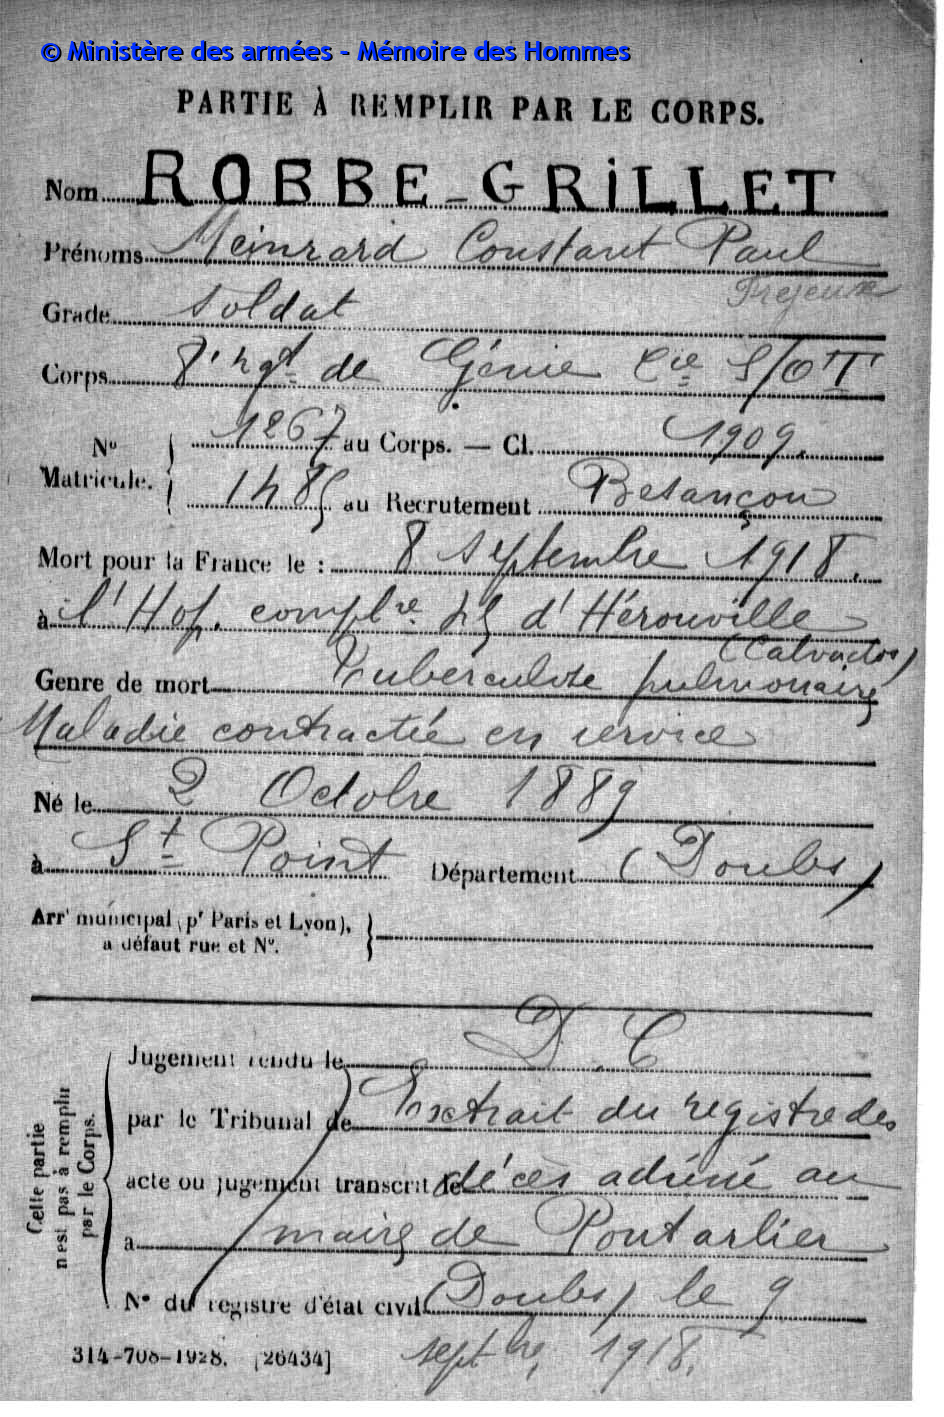 © Ministère des armées - Mémoire des Hommes
PARTIE À REMPLIR PAR LE CORPS.
Nom ROBBE-GRILLET
Prénoms Meinrard Constant Paul
Grade soldat
Corps 8e rgt de Génie Cie S/OT
No Matricule. { 1267 au Corps. — Cl. 1909.
1485 au Recrutement Besançon
Mort pour la France le : 8 septembre 1918.
à l'Hop. complre 45 d'Hérouville
(Calvados)
Genre de mort Tuberculose pulmonaire
Maladie contractée en service
Né le 2 Octobre 1889
à St Point Département (Doubs)
Arrt municipal (pr Paris et Lyon),
à défaut rue et No.
D. C
Jugement rendu le
par le Tribunal de Extrait du registre des
acte ou jugement transcrit le décès adressé au
à maire de Pontarlier
No du registre d'état civil (Doubs) le 9
septbre 1918.
Cette partie
n'est pas à remplir
par le Corps.
314-708-1928. [26434]